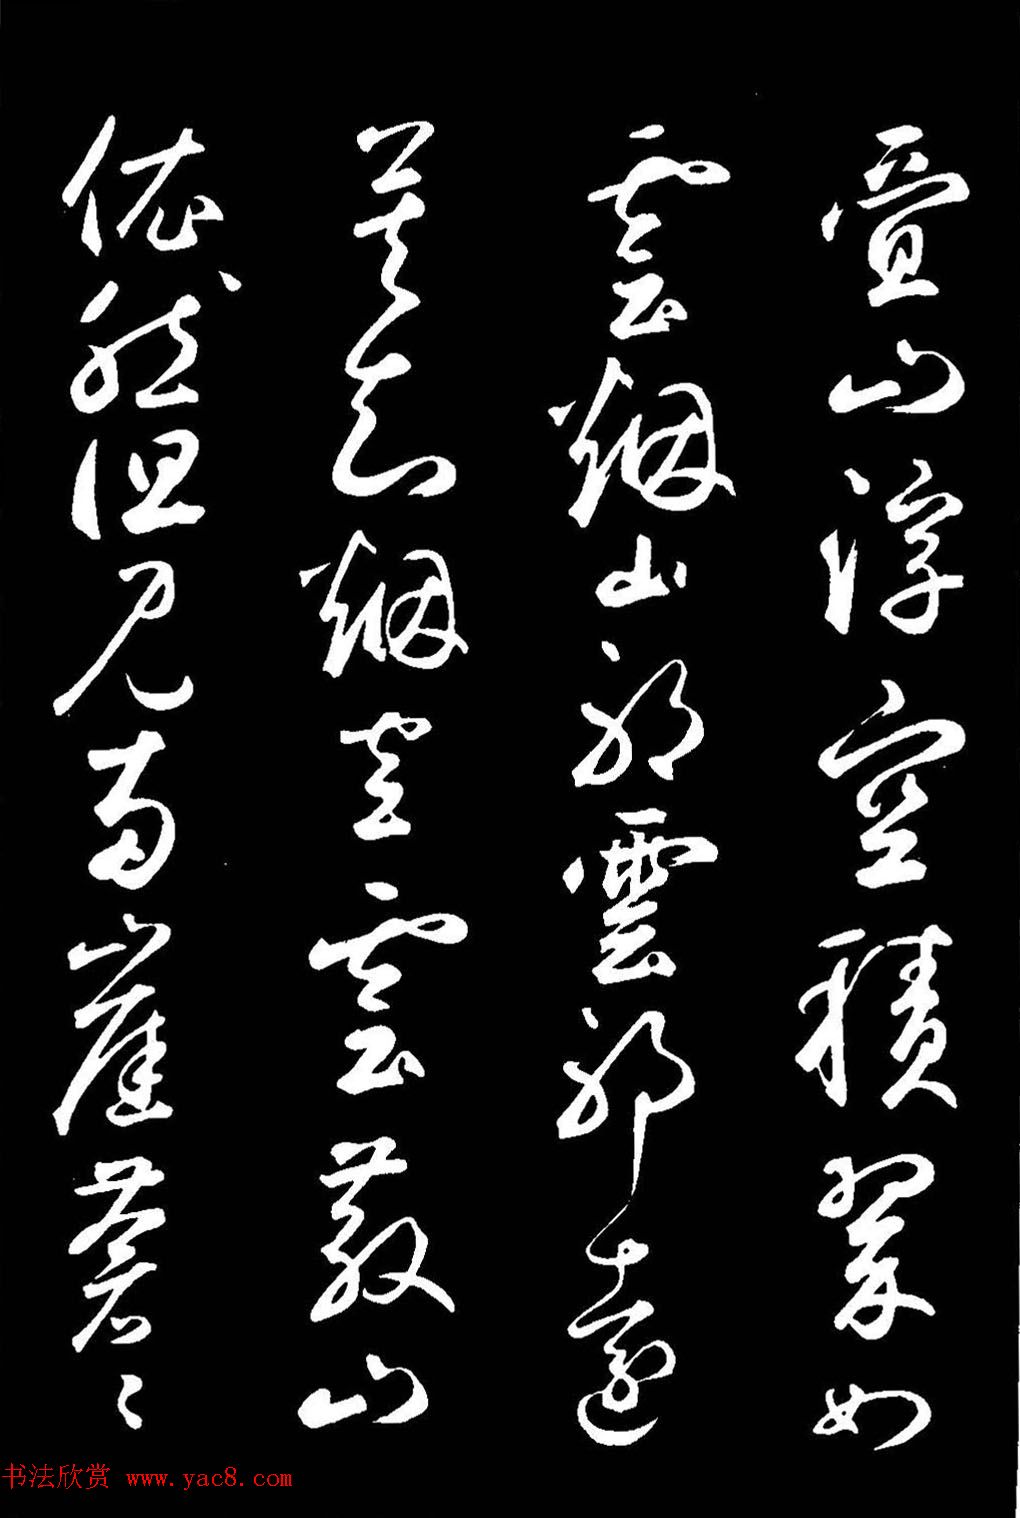 疊山浮空積翠如
雲烟山耶雲耶遠
莫知烟空雲散山
依然但見兩崖蒼〻
书法欣赏 www.yac8.com